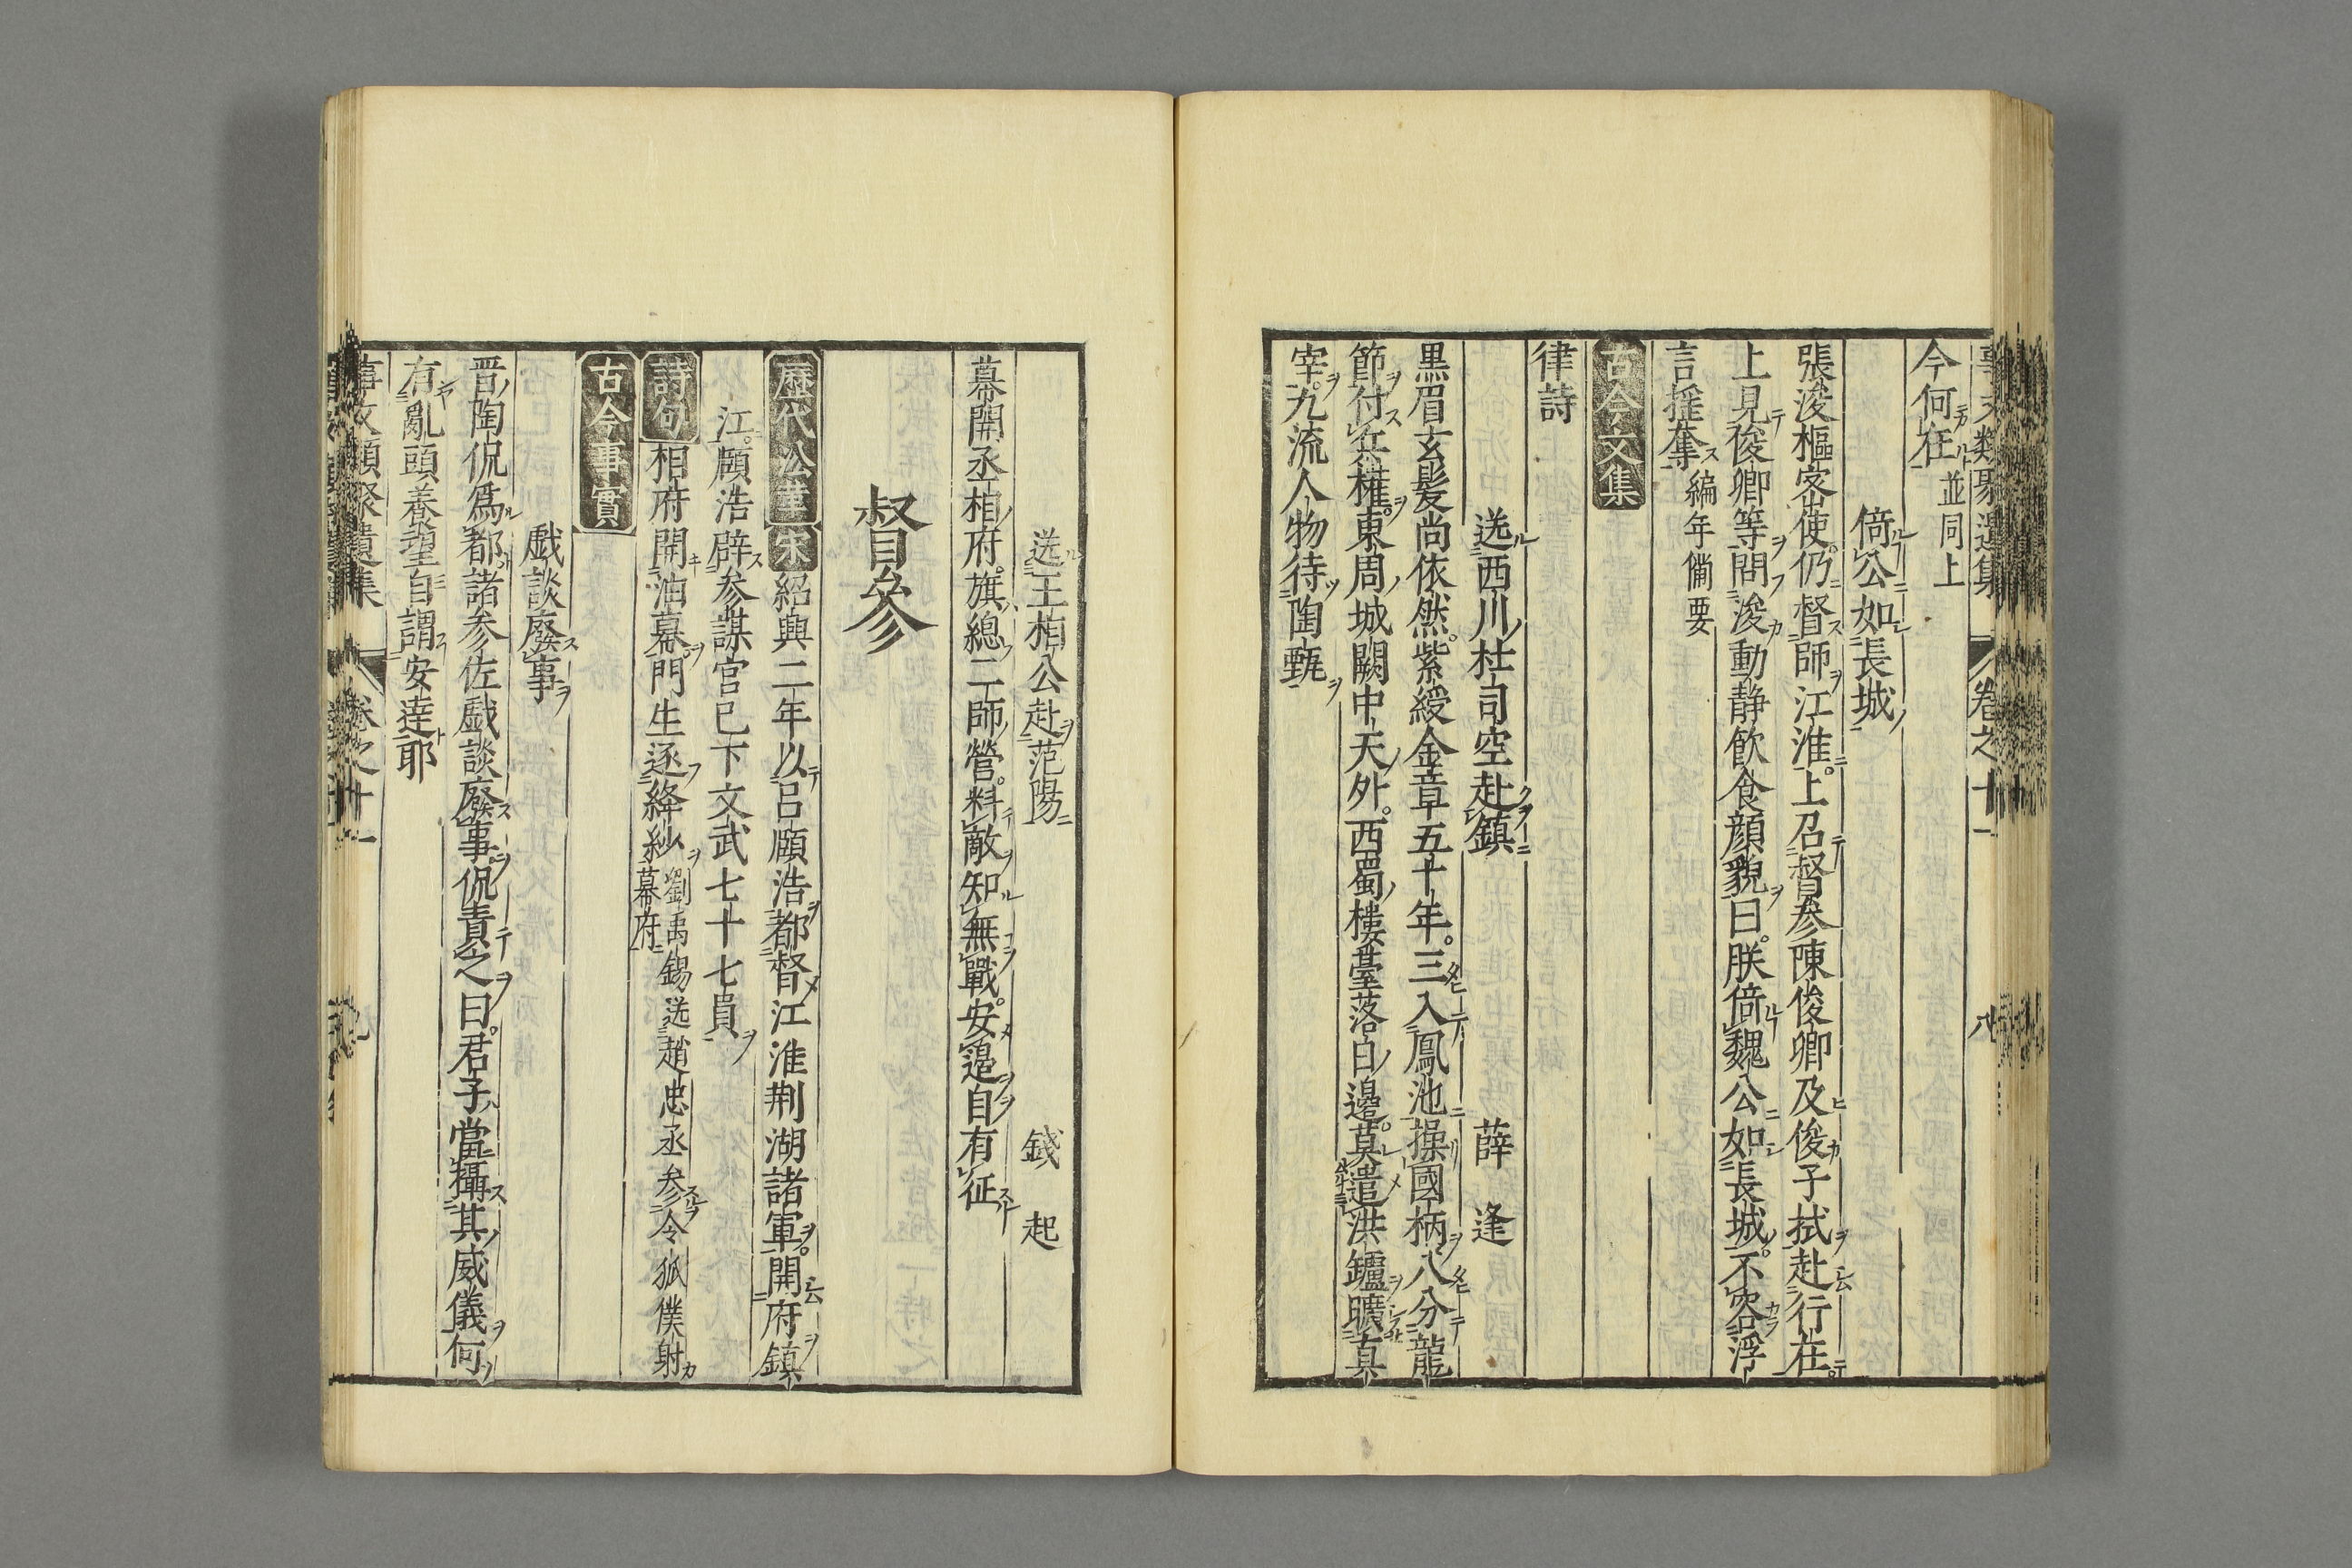 事文類聚遺集 卷之十一 八
今何在 並同上
倚公如長城
張浚樞密使仍督師江淮上召督參陳俊卿及俊子拭赴行在
上見俊卿等問浚動静飲食顔貌曰朕倚魏公如長城不容浮
言揺奪 編年備要
古今文集
律詩
送西川杜司空赴鎮 薛逢
黒眉玄髪尚依然紫綬金章五十年三入鳳池操國柄八分龍
節付兵權東周城闕中天外西蜀樓臺落日邊莫遣洪鑪曠真
宰九流人物待陶甄
送王相公赴范陽 錢起
幕開丞相府旗總二師營料敵知無戰安邊自有征
督參
歴代沿革 宋 紹興二年以吕頤浩都督江淮荆湖諸軍開府鎮
江頤浩辟参謀官已下文武七十七員
詩句 相府開油幕門生逐絳紗 劉禹錫送趙中丞參令狐僕射
幕府
古今事實
戯談廢事
晋陶侃爲都諸参佐戯談廢事侃責之曰君子當攝其威儀何
有亂頭養望自謂宏達耶
事文類聚遺集 卷之十一 九